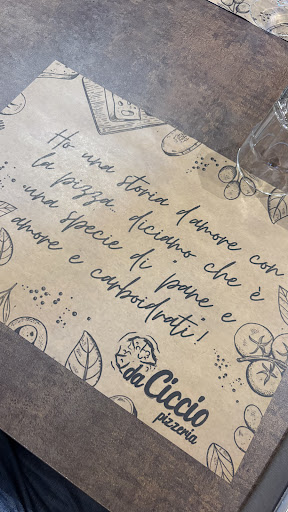 Ho una storia d'amore con
la pizza... diciamo che è
una specie di pane e
amore e carboidrati!
da Ciccio
pizzeria